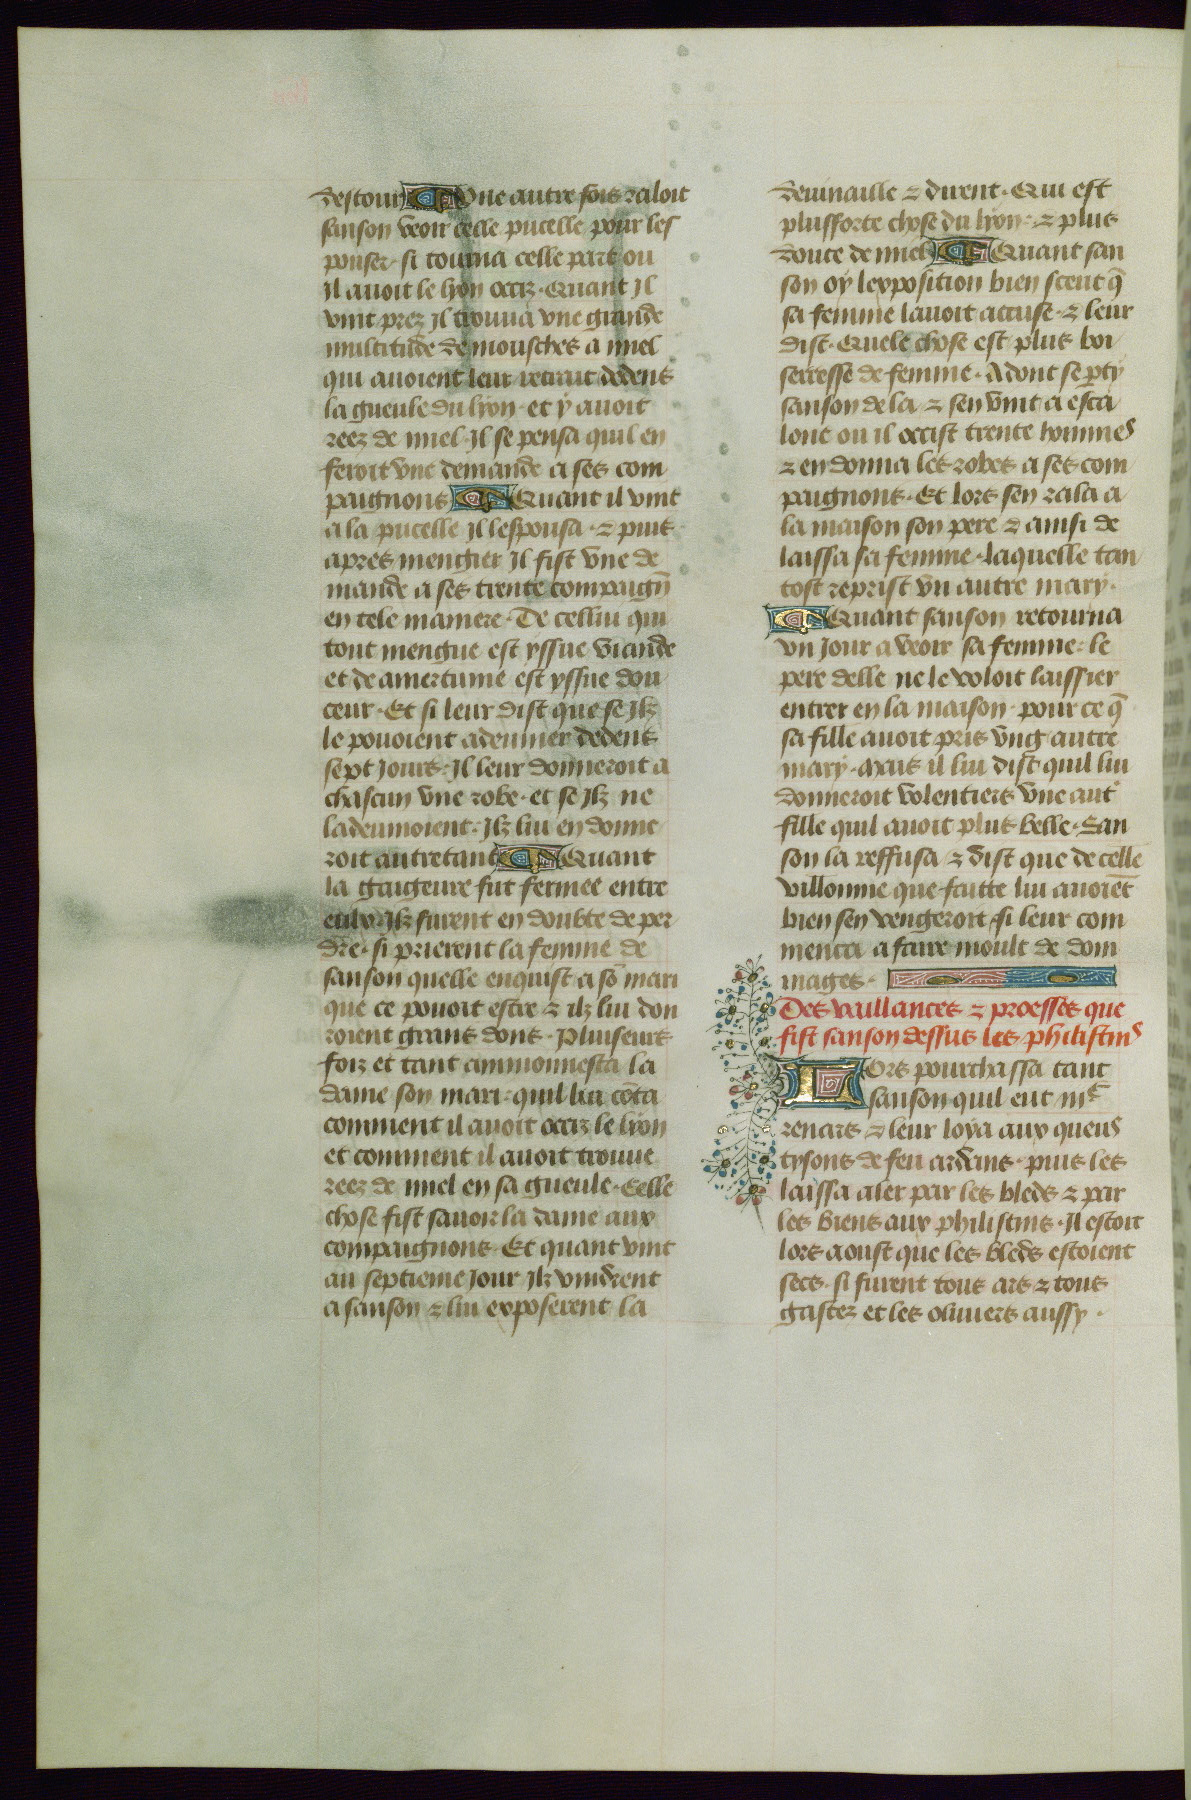 destour Une autre fois raloit
sanson veoir celle pucelle pour les
pouser. si tourna celle part ou
il auoit le lyon occiz. Quant Il
vint prez Il trouua vne grande
multitude de mousches a miel
qui auoient leur retrait dedens
la gueule du lyon. et y auoit
reez de miel. Il se pensa quil en
feroit vne demande a ses com
paignons Quant il vint
a la pucelle Il lespousa. ⁊ puis
apres mengier Il fist vne de
mande a ses trente compaigñ
en tele maniere. De cellui qui
tout mengue est yssue viande
et de amertume est yssue dou
ceur. Et si leur dist que se Ilz
le pouoient adeuiner dedens
sept Jours. Il leur donneroit a
chascun vne robe. et se Ilz ne
ladeuinoient. Ilz lui en donne
roit autretant Quant
la gaigeure fut fermee entre
eulx. Ilz furent en doubte de per
dre. si prierent la femme de
sanson quelle enquist a sõ mari
que ce pouoit estre ⁊ ilz lui don
roient grans dons. Pluiseurs
foiz et tant ammonnesta la
dame son mari. quil lui cõta
comment il auoit occiz le lyon
et comment il auoit trouue
reez de miel en sa gueule. Celle
chose fist sauoir la dame aux
compaignons. Et quant vint
au septieme Jour Ilz vindrent
a sanson ⁊ lui exposerent la
deuinaille ⁊ dirent. Qui est
plusforte chose du lyon. ⁊ plus
doulce de miel Quant san
son oÿ lexposition bien sceut q̃
sa femme lauoit accuse. ⁊ leur
dist. Quele chose est plus boi
serresse de femme. Adont se p̱ty
sanson de la ⁊ sen vint a esca
lone ou il occist trente hommes
⁊ en donna les robes a ses com
paignons. Et lors sen rala a
la maison son pere ⁊ ainsi de
laissa sa femme. laquelle tan
tost reprist vn autre mary.
Quant sanson retourna
vn Jour a veoir sa femme. le
pere delle ne le voloit laissier
entrer en la maison. pour ce q̃
sa fille auoit pris vng autre
mary. Mais il lui dist quil lui
donneroit volentiers vne aut̛
fille quil auoit plus belle. San
son la reffusa ⁊ dist que de celle
villonnie que faitte lui auoiẽt
bien sen vengeroit. si leur com
menca a faire moult de dom
mages.
Des vaillances ⁊ proesses que
fist sanson dessus les philistins
Lors pourchassa tant
sanson quil eut iiiᶜ
renars ⁊ leur loya aux queus
tysons de feu ardans. puis les
laissa aler par les bleds ⁊ par
les biens aux philistins. Il estoit
lors aoust que les bleds estoient
secs. si furent tous ars ⁊ tous
gastez et les oliuiers aussy.